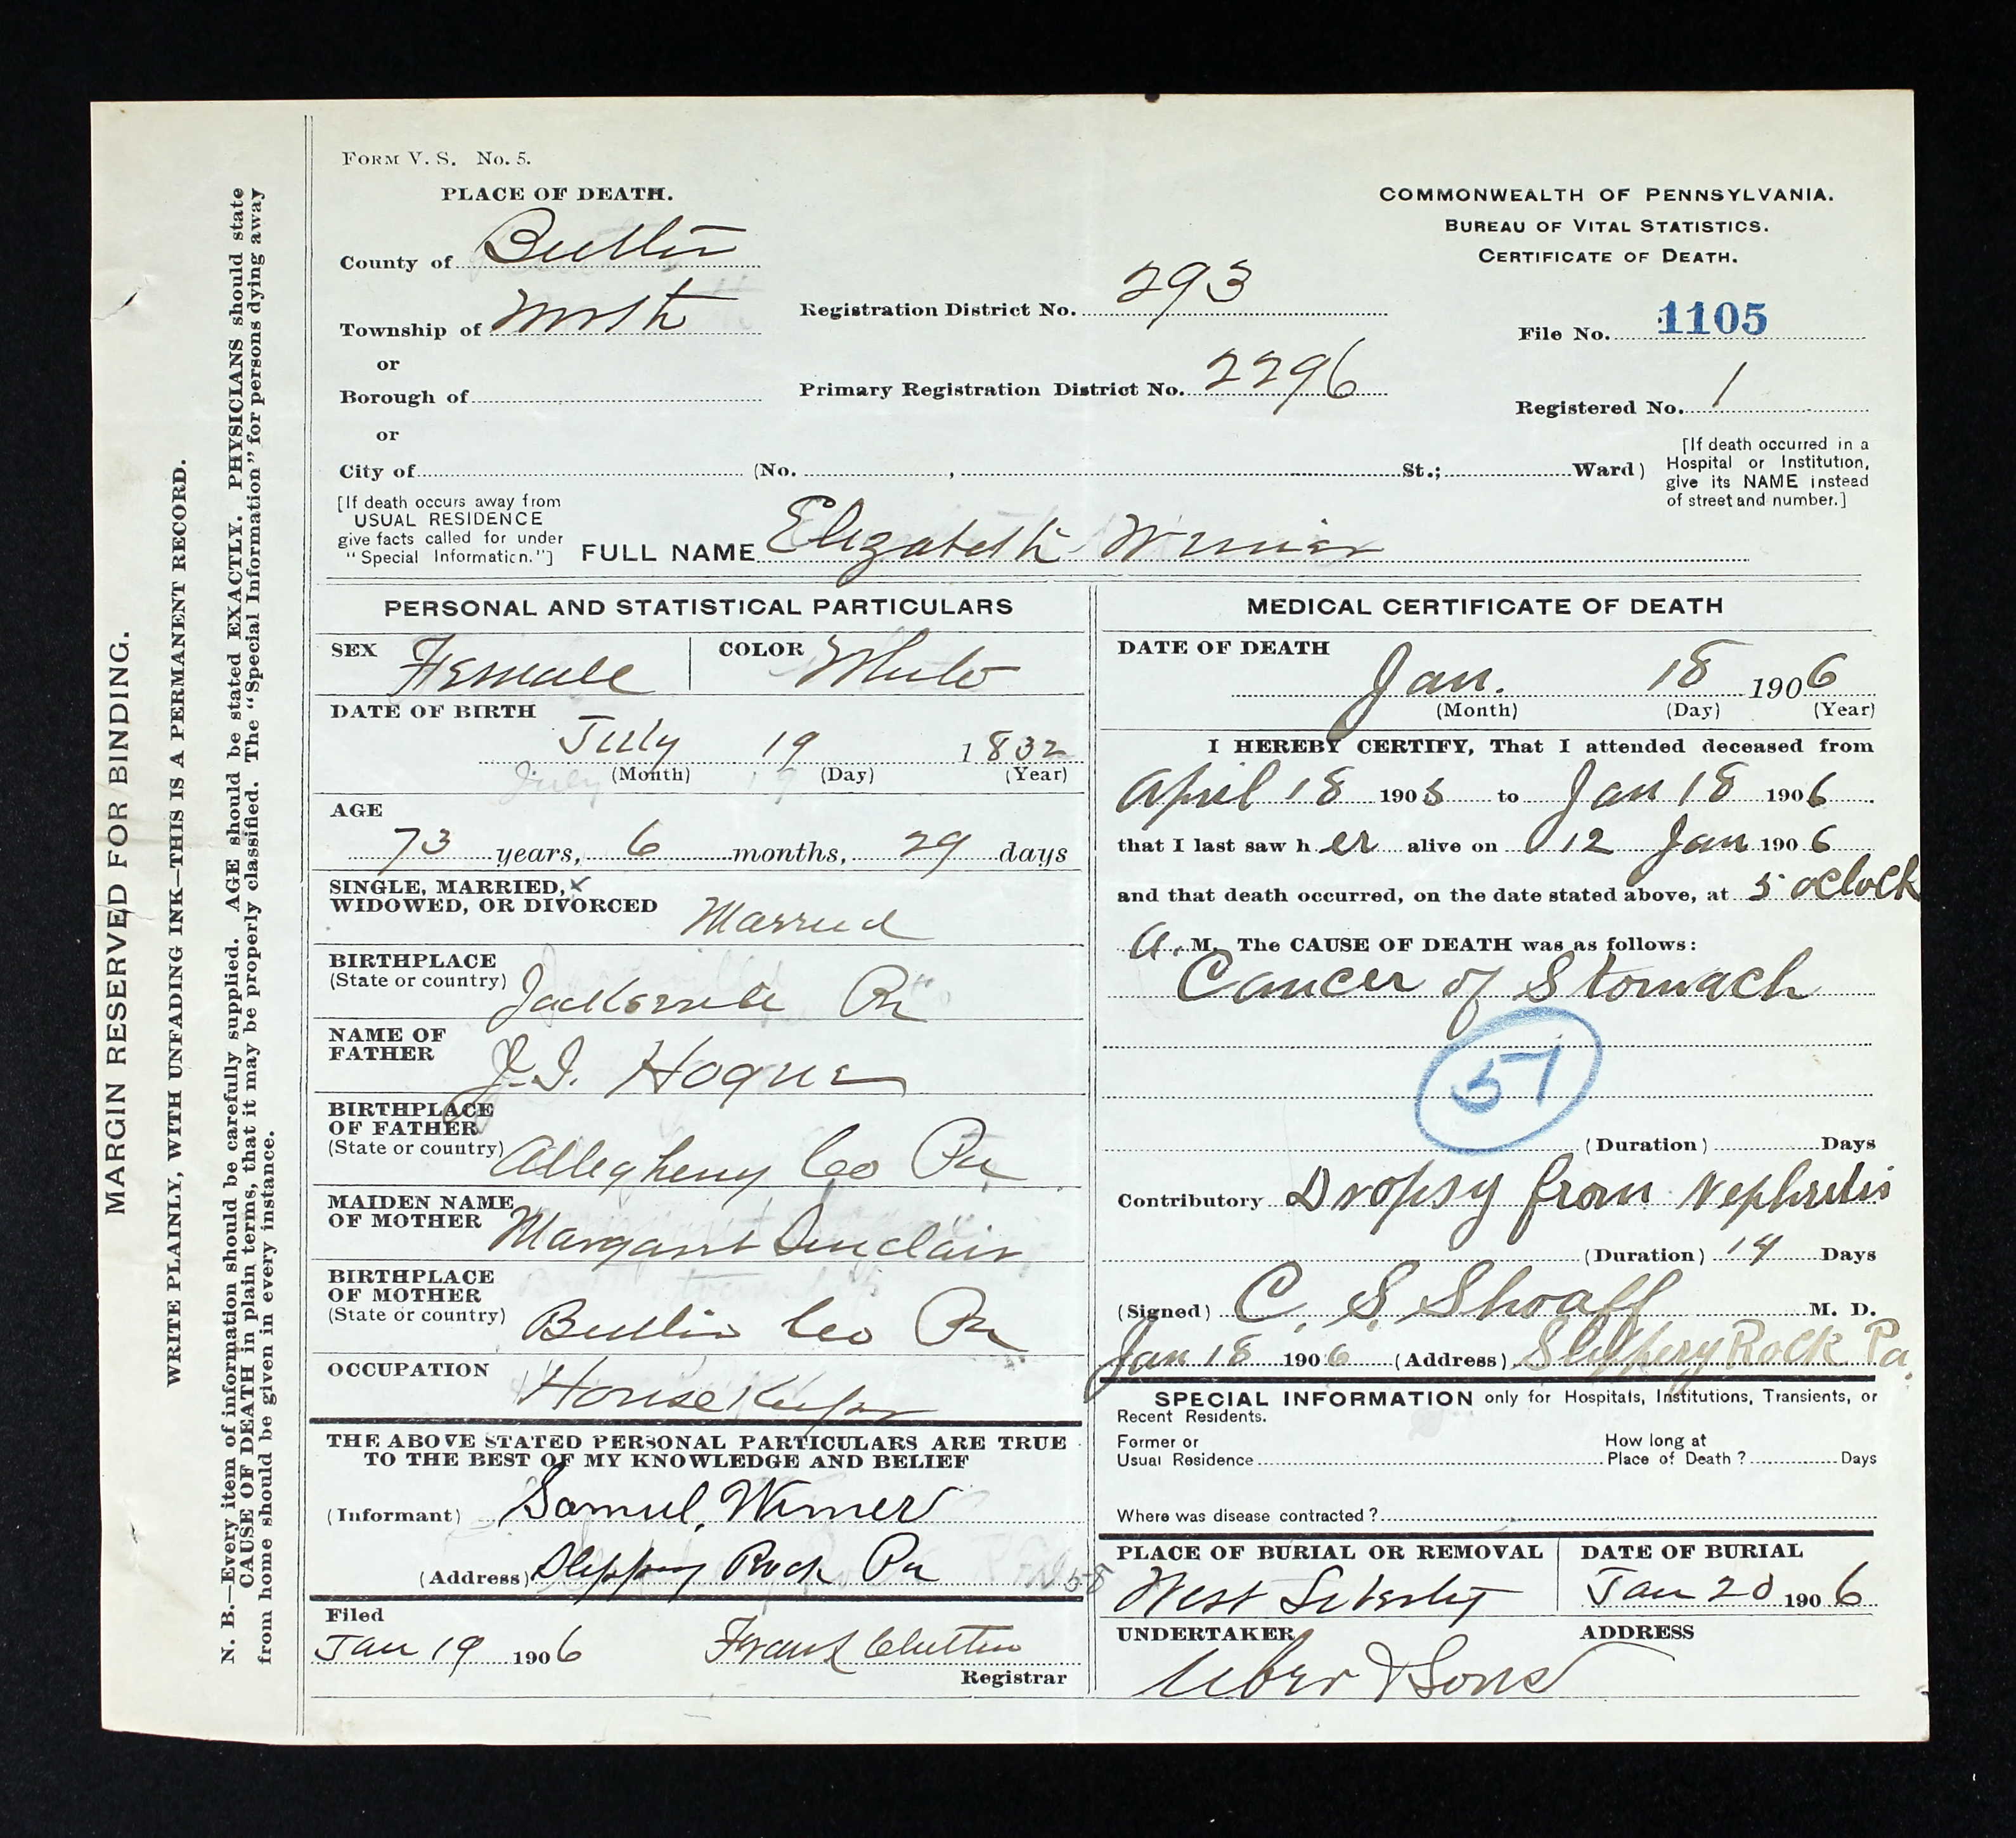 FORM V. S. No. 5.
PLACE OF DEATH.
COMMONWEALTH OF PENNSYLVANIA.
BUREAU OF VITAL STATISTICS.
CERTIFICATE OF DEATH.
County of Butler
Township of Worth
or
Borough of
or
Registration District No. 293
Primary Registration District No. 2296
File No. 1105
Registered No. 1
City of (No. , St.; Ward)
[If death occurred in a
Hospital or Institution,
give its NAME instead
of street and number.]
[If death occurs away from
USUAL RESIDENCE
give facts called for under
"Special Information."]
FULL NAME Elizabeth Wimer
PERSONAL AND STATISTICAL PARTICULARS
SEX Female COLOR White
DATE OF BIRTH
July 19 1832
(Month) (Day) (Year)
AGE
73 years, 6 months, 29 days
SINGLE, MARRIED, x
WIDOWED, OR DIVORCED Married
BIRTHPLACE
(State or country) Jacksville Pa
NAME OF
FATHER J. I. Hogue
BIRTHPLACE
OF FATHER
(State or country) Allegheny Co Pa
MAIDEN NAME
OF MOTHER Margaret Sinclair
BIRTHPLACE
OF MOTHER
(State or country) Butler Co Pa
OCCUPATION House Keeper
THE ABOVE STATED PERSONAL PARTICULARS ARE TRUE
TO THE BEST OF MY KNOWLEDGE AND BELIEF
(Informant) Samul Wimer
(Address) Slippery Rock Pa
Filed
Jan 19 1906 Frank
Registrar
MEDICAL CERTIFICATE OF DEATH
DATE OF DEATH
Jan. 18 1906
(Month) (Day) (Year)
I HEREBY CERTIFY, That I attended deceased from
April 18 1905 to Jan 18 1906
that I last saw her alive on 12 Jan 1906
and that death occurred, on the date stated above, at 5 oclock
A. M. The CAUSE OF DEATH was as follows:
Cancer of Stomach
57
(Duration) Days
Contributory Dropsy from Nephritis
(Duration) 14 Days
(Signed) C. S. Shoaff M. D.
Jan 18 1906 (Address) Slippery Rock Pa.
SPECIAL INFORMATION only for Hospitals, Institutions, Transients, or
Recent Residents.
Former or
Usual Residence
How long at
Place of Death? Days
Where was disease contracted?
PLACE OF BURIAL OR REMOVAL
West Liberty
DATE OF BURIAL
Jan 20 1906
UNDERTAKER
Uber & Sons
ADDRESS
MARGIN RESERVED FOR BINDING.
WRITE PLAINLY, WITH UNFADING INK—THIS IS A PERMANENT RECORD.
N. B.—Every item of information should be carefully supplied. AGE should be stated EXACTLY. PHYSICIANS should state
CAUSE OF DEATH in plain terms, that it may be properly classified. The "Special Information" for persons dying away
from home should be given in every instance.